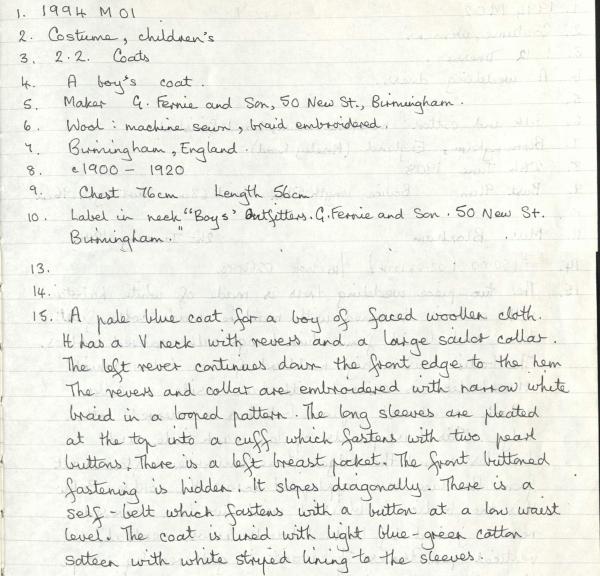 1. 1994 M 01
2. Costume, children's
3. 2.2. Coats
4. A boy's coat.
5. Maker G. Fernie and Son, 50 New St., Birmingham.
6. Wool: machine sewn, braid embroidered.
7. Birmingham, England.
8. c1900 - 1920
9. Chest 76cm Length 56cm
10. Label in neck "Boys' Outfitters. G. Fernie and Son. 50 New St.
Birmingham."
13.
14.
15. A pale blue coat for a boy of faced woollen cloth.
It has a V neck with revers and a large sailor collar.
The left rever continues down the front edge to the hem
The revers and collar are embroidered with narrow white
braid in a looped pattern. The long sleeves are pleated
at the top into a cuff which fastens with two pearl
buttons. There is a left breast pocket. The front buttoned
fastening is hidden. It slopes diagonally. There is a
self-belt which fastens with a button at a low waist
level. The coat is lined with light blue-green cotton
sateen with white striped lining to the sleeves.